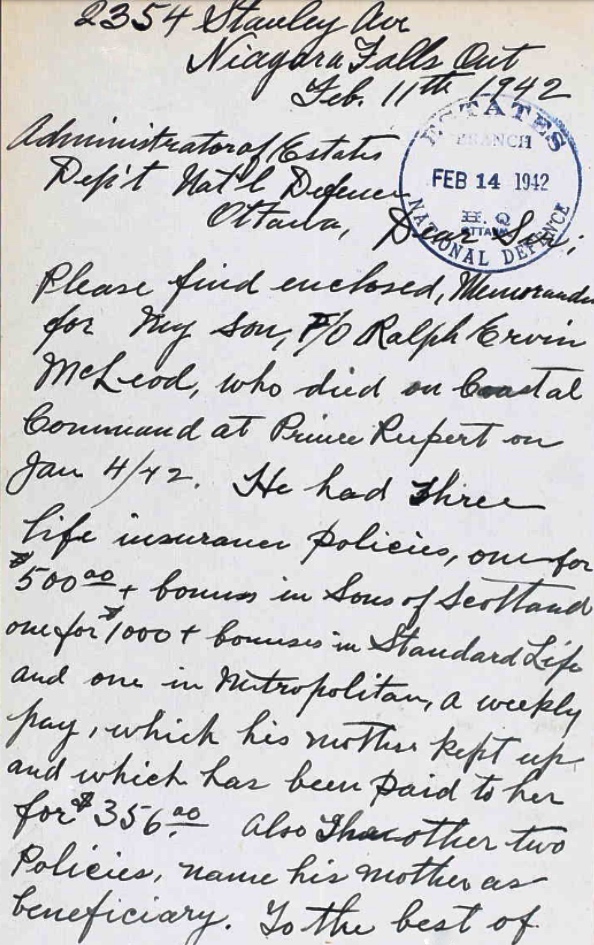 2354 Stanley Ave
Niagara Falls Ont
Feb. 11th 1942
ESTATES
BRANCH
FEB 14 1942
H.Q
OTTAWA
NATIONAL DEFENCE
Administrator of Estates
Dep't Nat'l Defence
Ottawa, Dear Sir;
Please find enclosed, Memoranda
for My son, F/O Ralph Ervin
McLeod, who died on Coastal
Command at Prince Rupert on
Jan 4/42. He had Three
life insurance policies, one for
$500.00 + bonus in Sons of Scotland
one for $1000 + bonuses in Standard Life
and one in Metropolitan, a weekly
pay, which his mother kept up
and which has been paid to her
for $356.00 Also The other two
Policies, name his mother as
beneficiary. To the best of